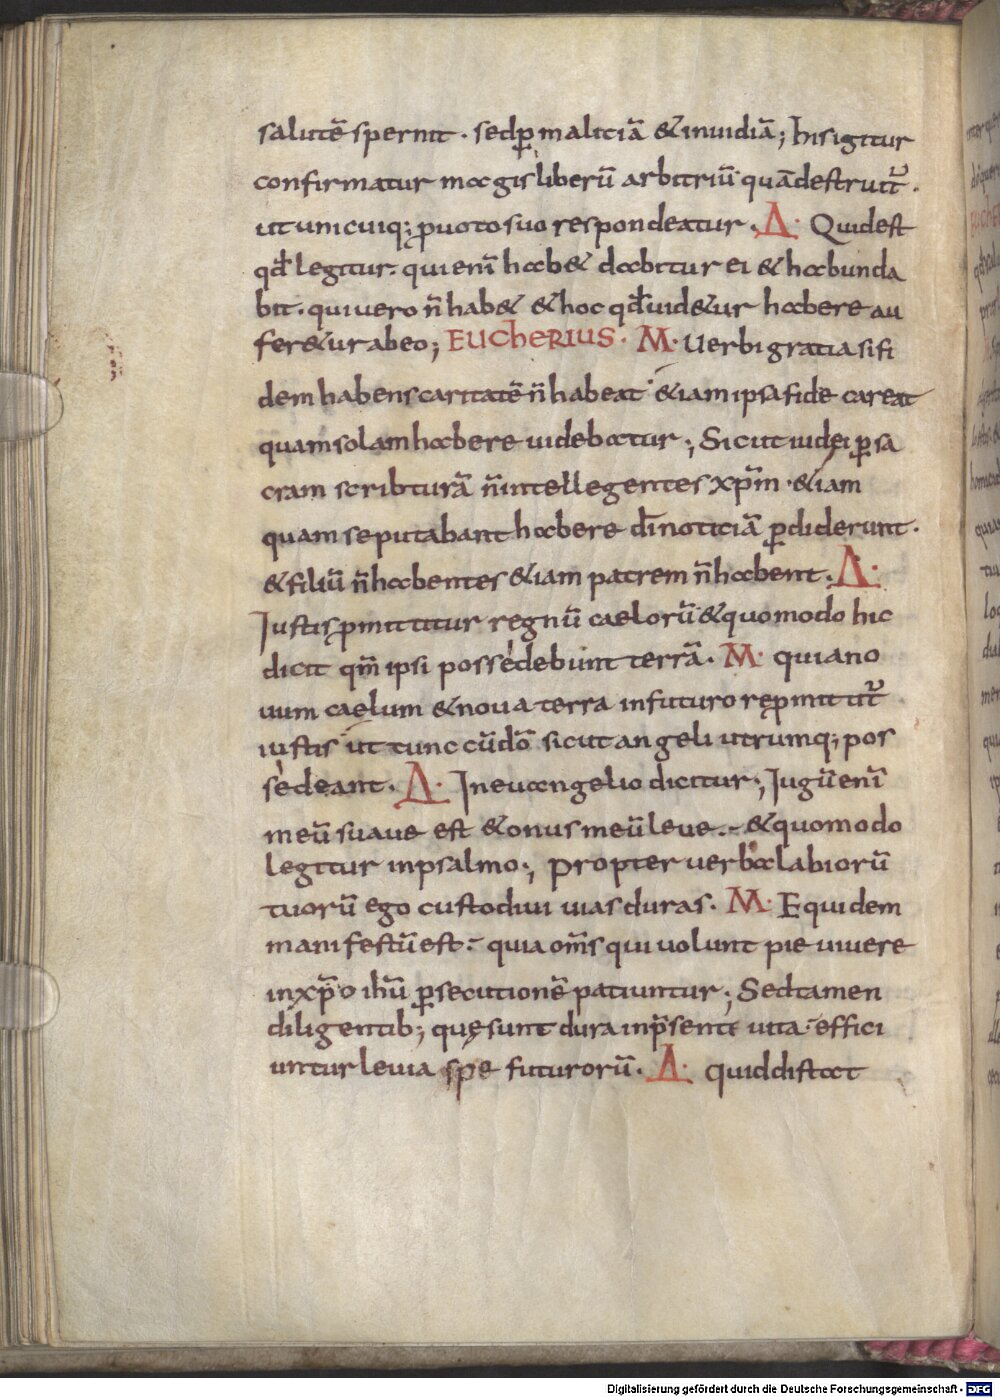 salutē spernit · sed ꝑ maliciā & inuidiā; hisigitur
confirmatur magis liberū arbitriū quā destruit᷑ ·
ut unicuiq; ꝓuoto suo respondeatur . Δ · Quid est
qđ legitur · qui enī hab& dabitur ei & habunda
bit · qui uero n̄ hab& & hoc qđ uid&ur habere au
fer&ur ab eo; EUCHERIUS · M · Uerbi gratia si fi
dem habens caritatē n̄ habeat &iam ipsa fide careat
quam solam habere uidebatur; Sicut iudei ꝑ sa
cram scribturā n̄ intellegentes xp̄m · &iam
quam se putabant habere dī noticiā ꝑdiderunt ·
& filiū n̄ habentes &iam patrem n̄ habent . Δ ·
Iustis ꝓmittitur regnū caelorū & quomodo hic
dicit qm̄ ipsi possedebunt terrā · M · quia no
uum caelum & noua terra in futuro reꝓmittit᷑
iustis ut tunc cūdō sicut angeli utrumq; pos
sedeant · Δ · In euangelio dicitur; Iugū enī
meū suaue est & onus meū leue .- & quomodo
legitur in psalmo; propter uerba labiorū
tuorū ego custodiui uias duras · M · Equidem
manifestū est :- quia om̄s qui uolunt pie uiuere
in xp̄o ihū ꝑsecutionē patiuntur; Sed tamen
diligentib; quę sunt dura in p̄senti uita effici
untur leuia spe futurorū · Δ · quid distat
Digitalisierung gefördert durch die Deutsche Forschungsgemeinschaft - DFG